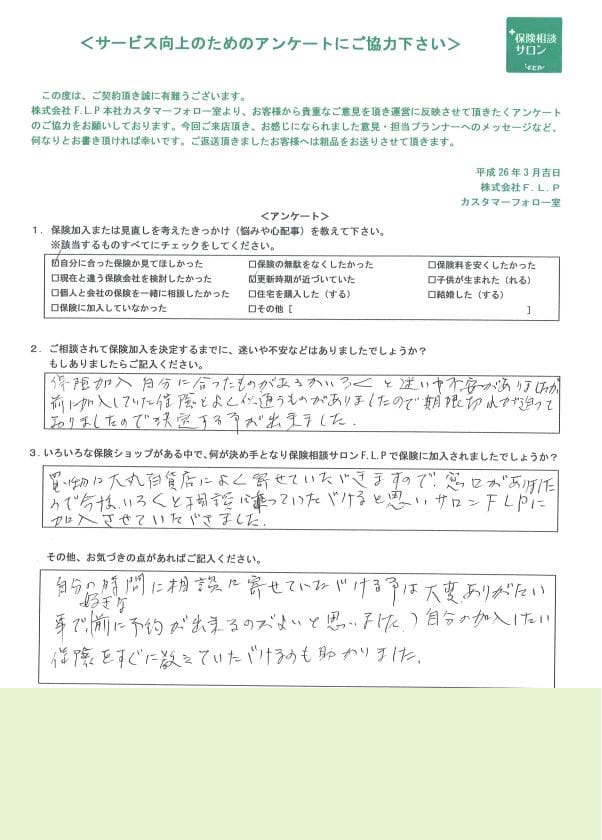 ＜サービス向上のためのアンケートにご協力下さい＞
+保険相談
サロン
F.L.P
この度は、ご契約頂き誠に有難うございます。
株式会社F.L.P本社カスタマーフォロー室より、お客様から貴重なご意見を頂き運営に反映させて頂きたくアンケート
のご協力をお願いしております。今回ご来店頂き、お感じになられました意見・担当プランナーへのメッセージなど、
何なりとお書き頂ければ幸いです。ご返送頂きましたお客様へは粗品をお送りさせて頂きます。
平成26年3月吉日
株式会社F.L.P
カスタマーフォロー室
＜アンケート＞
1．保険加入または見直しを考えたきっかけ（悩みや心配事）を教えて下さい。
※該当するものすべてにチェックをしてください。
☑自分に合った保険か見てほしかった □保険の無駄をなくしたかった □保険料を安くしたかった
□現在と違う保険会社を検討したかった ☑更新時期が近づいていた □子供が生まれた（れる）
□個人と会社の保険を一緒に相談したかった □住宅を購入した（する） □結婚した（する）
□保険に加入していなかった □その他［ ］
2．ご相談されて保険加入を決定するまでに、迷いや不安などはありましたでしょうか？
もしありましたらご記入ください。
保険加入 自分に合ったものがあるかいろいろと迷いや不安がありましたが
前に加入していた保険とよく似通うものがありましたので期限切れが迫って
おりましたので決定する事が出来ました.
3．いろいろな保険ショップがある中で、何が決め手となり保険相談サロンF.L.Pで保険に加入されましたでしょうか？
買い物に大丸百貨店によく寄せていただきますので、窓口がありました
ので今後、いろいろと相談に乗っていただけると思いサロンFLPに
加入させていただきました.
その他、お気づきの点があればご記入ください。
自分の時間に相談に寄せていただける事は大変ありがたい
好きな
事で、(前に予約が出来るのがよいと思いました。)自分の加入したい
保険をすぐに教えていただけるのも助かりました.